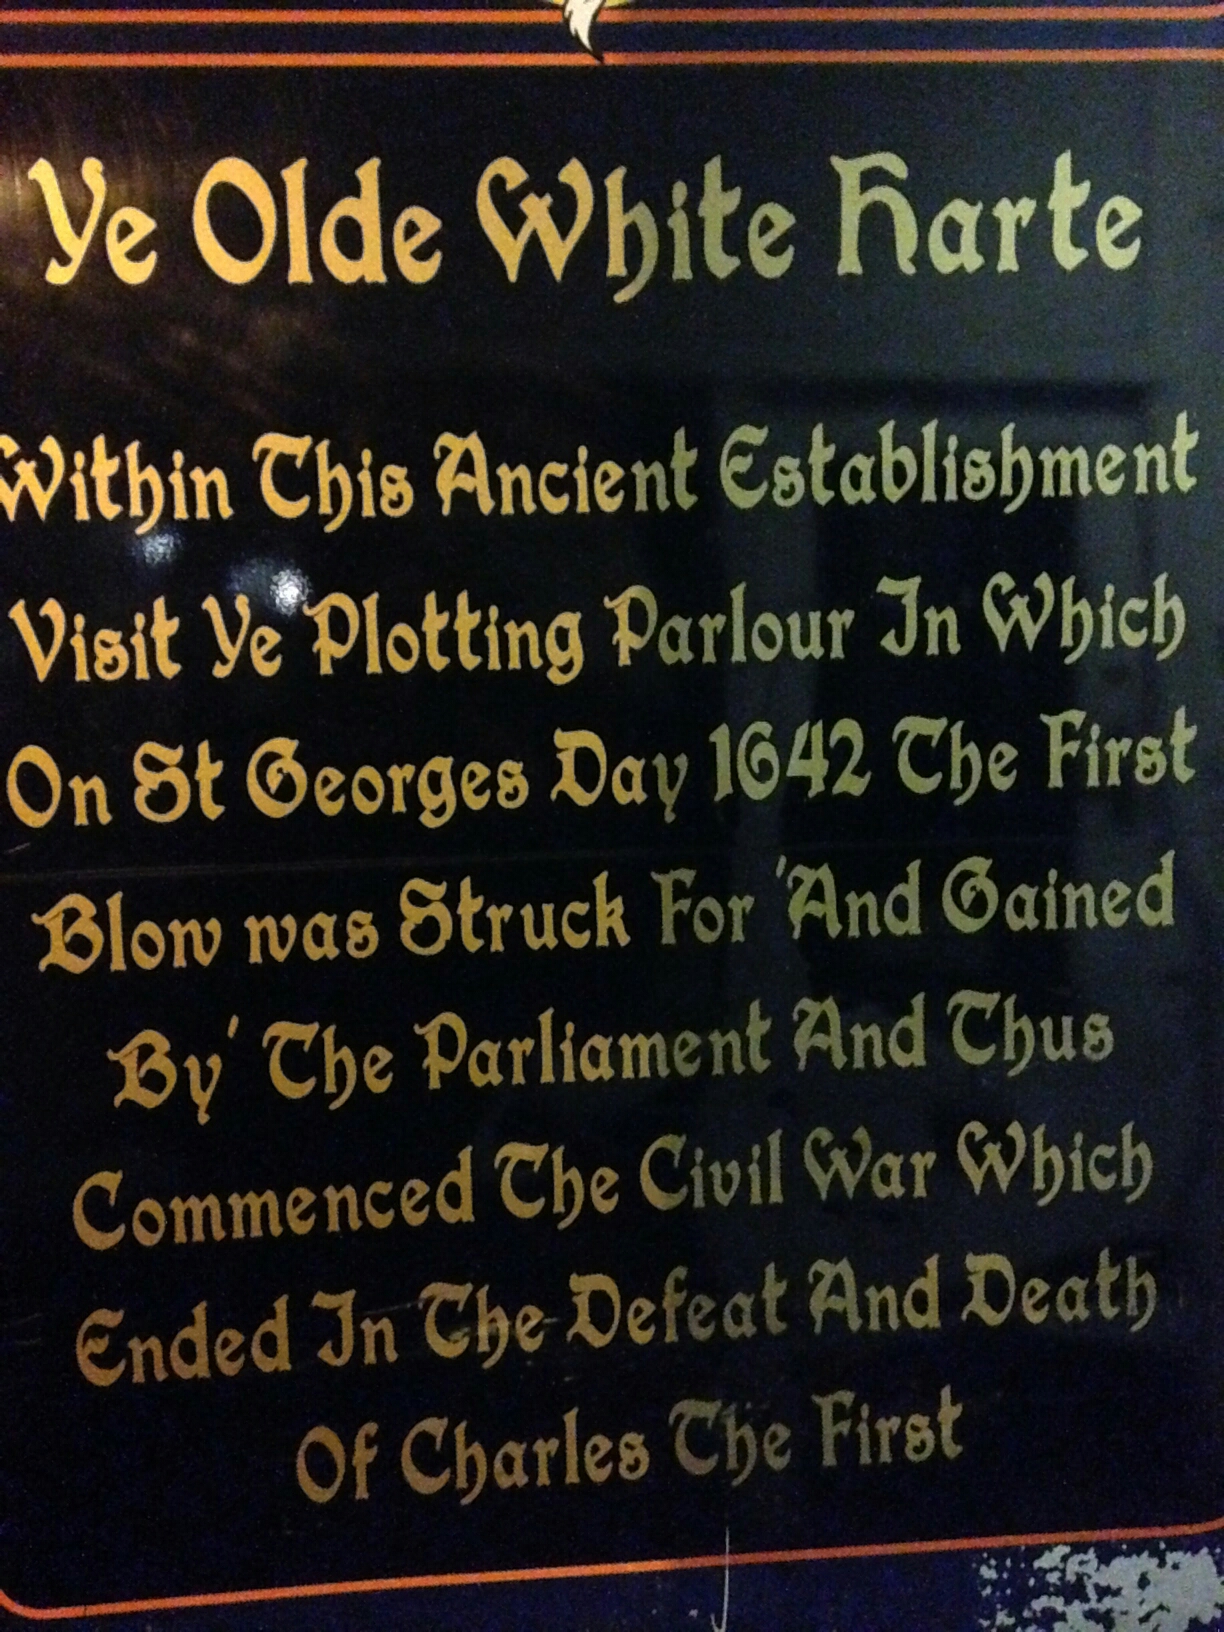 Ye Olde White Harte
Within This Ancient Establishment
Visit Ye Plotting Parlour In Which
On St Georges Day 1642 The First
Blow was Struck For 'And Gained
By' The Parliament And Thus
Commenced The Civil War Which
Ended In The Defeat And Death
Of Charles The First